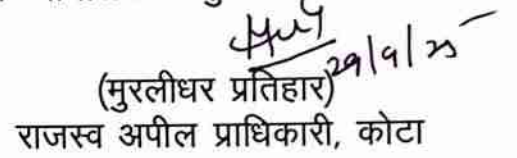 29/9/25
(मुरलीधर प्रतिहार)
राजस्व अपील प्राधिकारी, कोटा